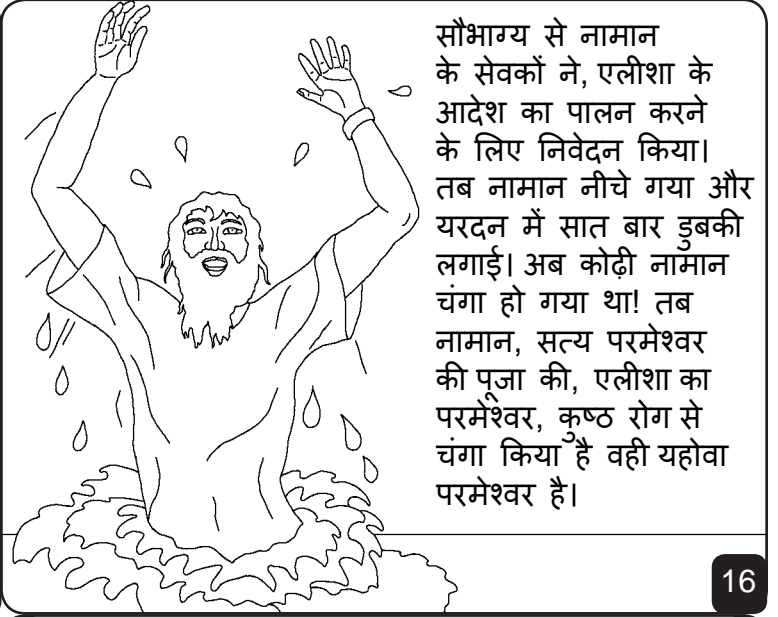 सौभाग्य से नामान
के सेवकों ने, एलीशा के
आदेश का पालन करने
के लिए निवेदन किया।
तब नामान नीचे गया और
यरदन में सात बार डुबकी
लगाई। अब कोढ़ी नामान
चंगा हो गया था! तब
नामान, सत्य परमेश्वर
की पूजा की, एलीशा का
परमेश्वर, कुष्ठ रोग से
चंगा किया है वही यहोवा
परमेश्वर है।
16